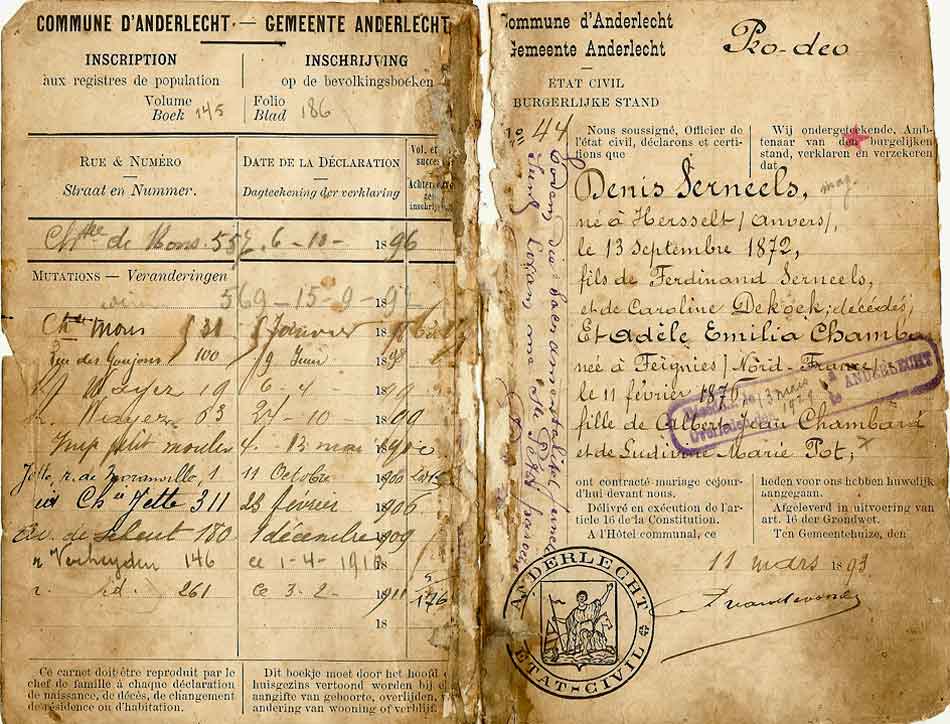 COMMUNE D'ANDERLECHT. — GEMEENTE ANDERLECHT
INSCRIPTION
aux registres de population
INSCHRIJVING
op de bevolkingsboeken
Volume
Boek 145
Folio
Blad 186
RUE & NUMÉRO
Straat en Nummer.
DATE DE LA DÉCLARATION
Dagteekening der verklaring
Vol. et
succes
Chée de Mons. 557. 6-10- 1896
MUTATIONS — Veranderingen
569-15-9-97
Chée Mons 31 Janvier
rue des Goujons 100 9 Juin 1898
19 6-4- 1899
63 27-10 1900
Imp petit moulin 4. 13 mai
Jette, r. de 1 11 Octobre 1900
Ch ée Jette 311 23 février 1906
Av. de 180 1 décembre 1909
r Verheyden 146 ce 1-4-191
r. id. 261 ce 3-2- 1911
176
18
Ce carnet doit être reproduit par le
chef de famille à chaque déclaration
de naissance, de décès, de changement
de résidence ou d'habitation.
Dit boekje moet door het hoofd
huisgezins vertoond worden bij
aangifte van geboorte, overlijden,
andering van wooning of verblijf.
Commune d'Anderlecht
Gemeente Anderlecht
ÉTAT CIVIL
BURGERLIJKE STAND
Pro-deo
No 44
Nous soussigné, Officier de
l'état civil, déclarons et certi-
fions que
Wij ondergeteekende, Amb-
tenaar van den burgelijken
stand, verklaren en verzekeren
dat
Denis Serneels, mag.
né à Hersselt /Anvers/,
le 13 Septembre 1872,
fils de Ferdinand Serneels,
et de Caroline Dekock; décédés;
Et Adèle Emilia Chamba
née à Feignies /Nord-France/
le 11 février 187
fille de Albert Jean Chambard
et de Ludivine Marie Pot;
ANDERLECHT
ont contracté mariage cejour-
d'hui devant nous.
Délivré en exécution de l'ar-
ticle 16 de la Constitution.
A l'Hôtel communal, ce
heden voor ons hebben huwelijk
aangegaan.
Afgeleverd in uitvoering van
art. 16 der Grondwet.
Ten Gemeentehuize, den
11 mars 1893
ANDERLECHT
ÉTAT-CIVIL